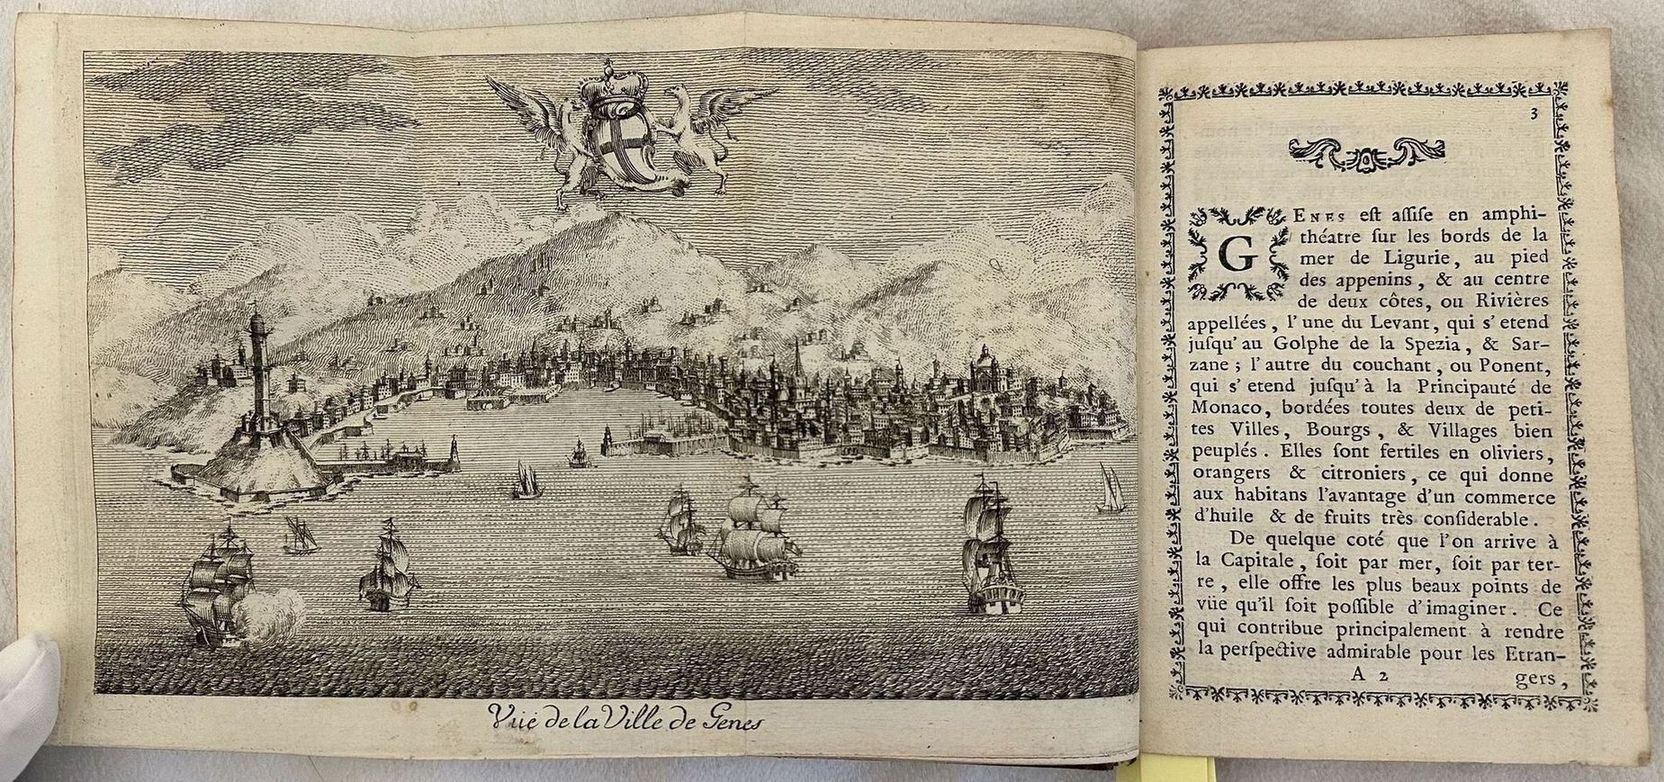 Vüe de la Ville de Genes
3
GENES eſt aſſiſe en amphi-
théatre ſur les bords de la
mer de Ligurie, au pied
des appenins, & au centre
de deux côtes, ou Rivières
appellées, l'une du Levant, qui s'etend
juſqu'au Golphe de la Spezia, & Sar-
zane; l'autre du couchant, ou Ponent,
qui s'etend juſqu'à la Principauté de
Monaco, bordées toutes deux de peti-
tes Villes, Bourgs, & Villages bien
peuplés. Elles ſont fertiles en oliviers,
orangers & citroniers, ce qui donne
aux habitans l'avantage d'un commerce
d'huile & de fruits très conſiderable.
De quelque coté que l'on arrive à
la Capitale, ſoit par mer, ſoit par ter-
re, elle offre les plus beaux points de
vüe qu'il ſoit poſſible d'imaginer. Ce
qui contribue principalement à rendre
la perſpective admirable pour les Etran-
A 2 gers,